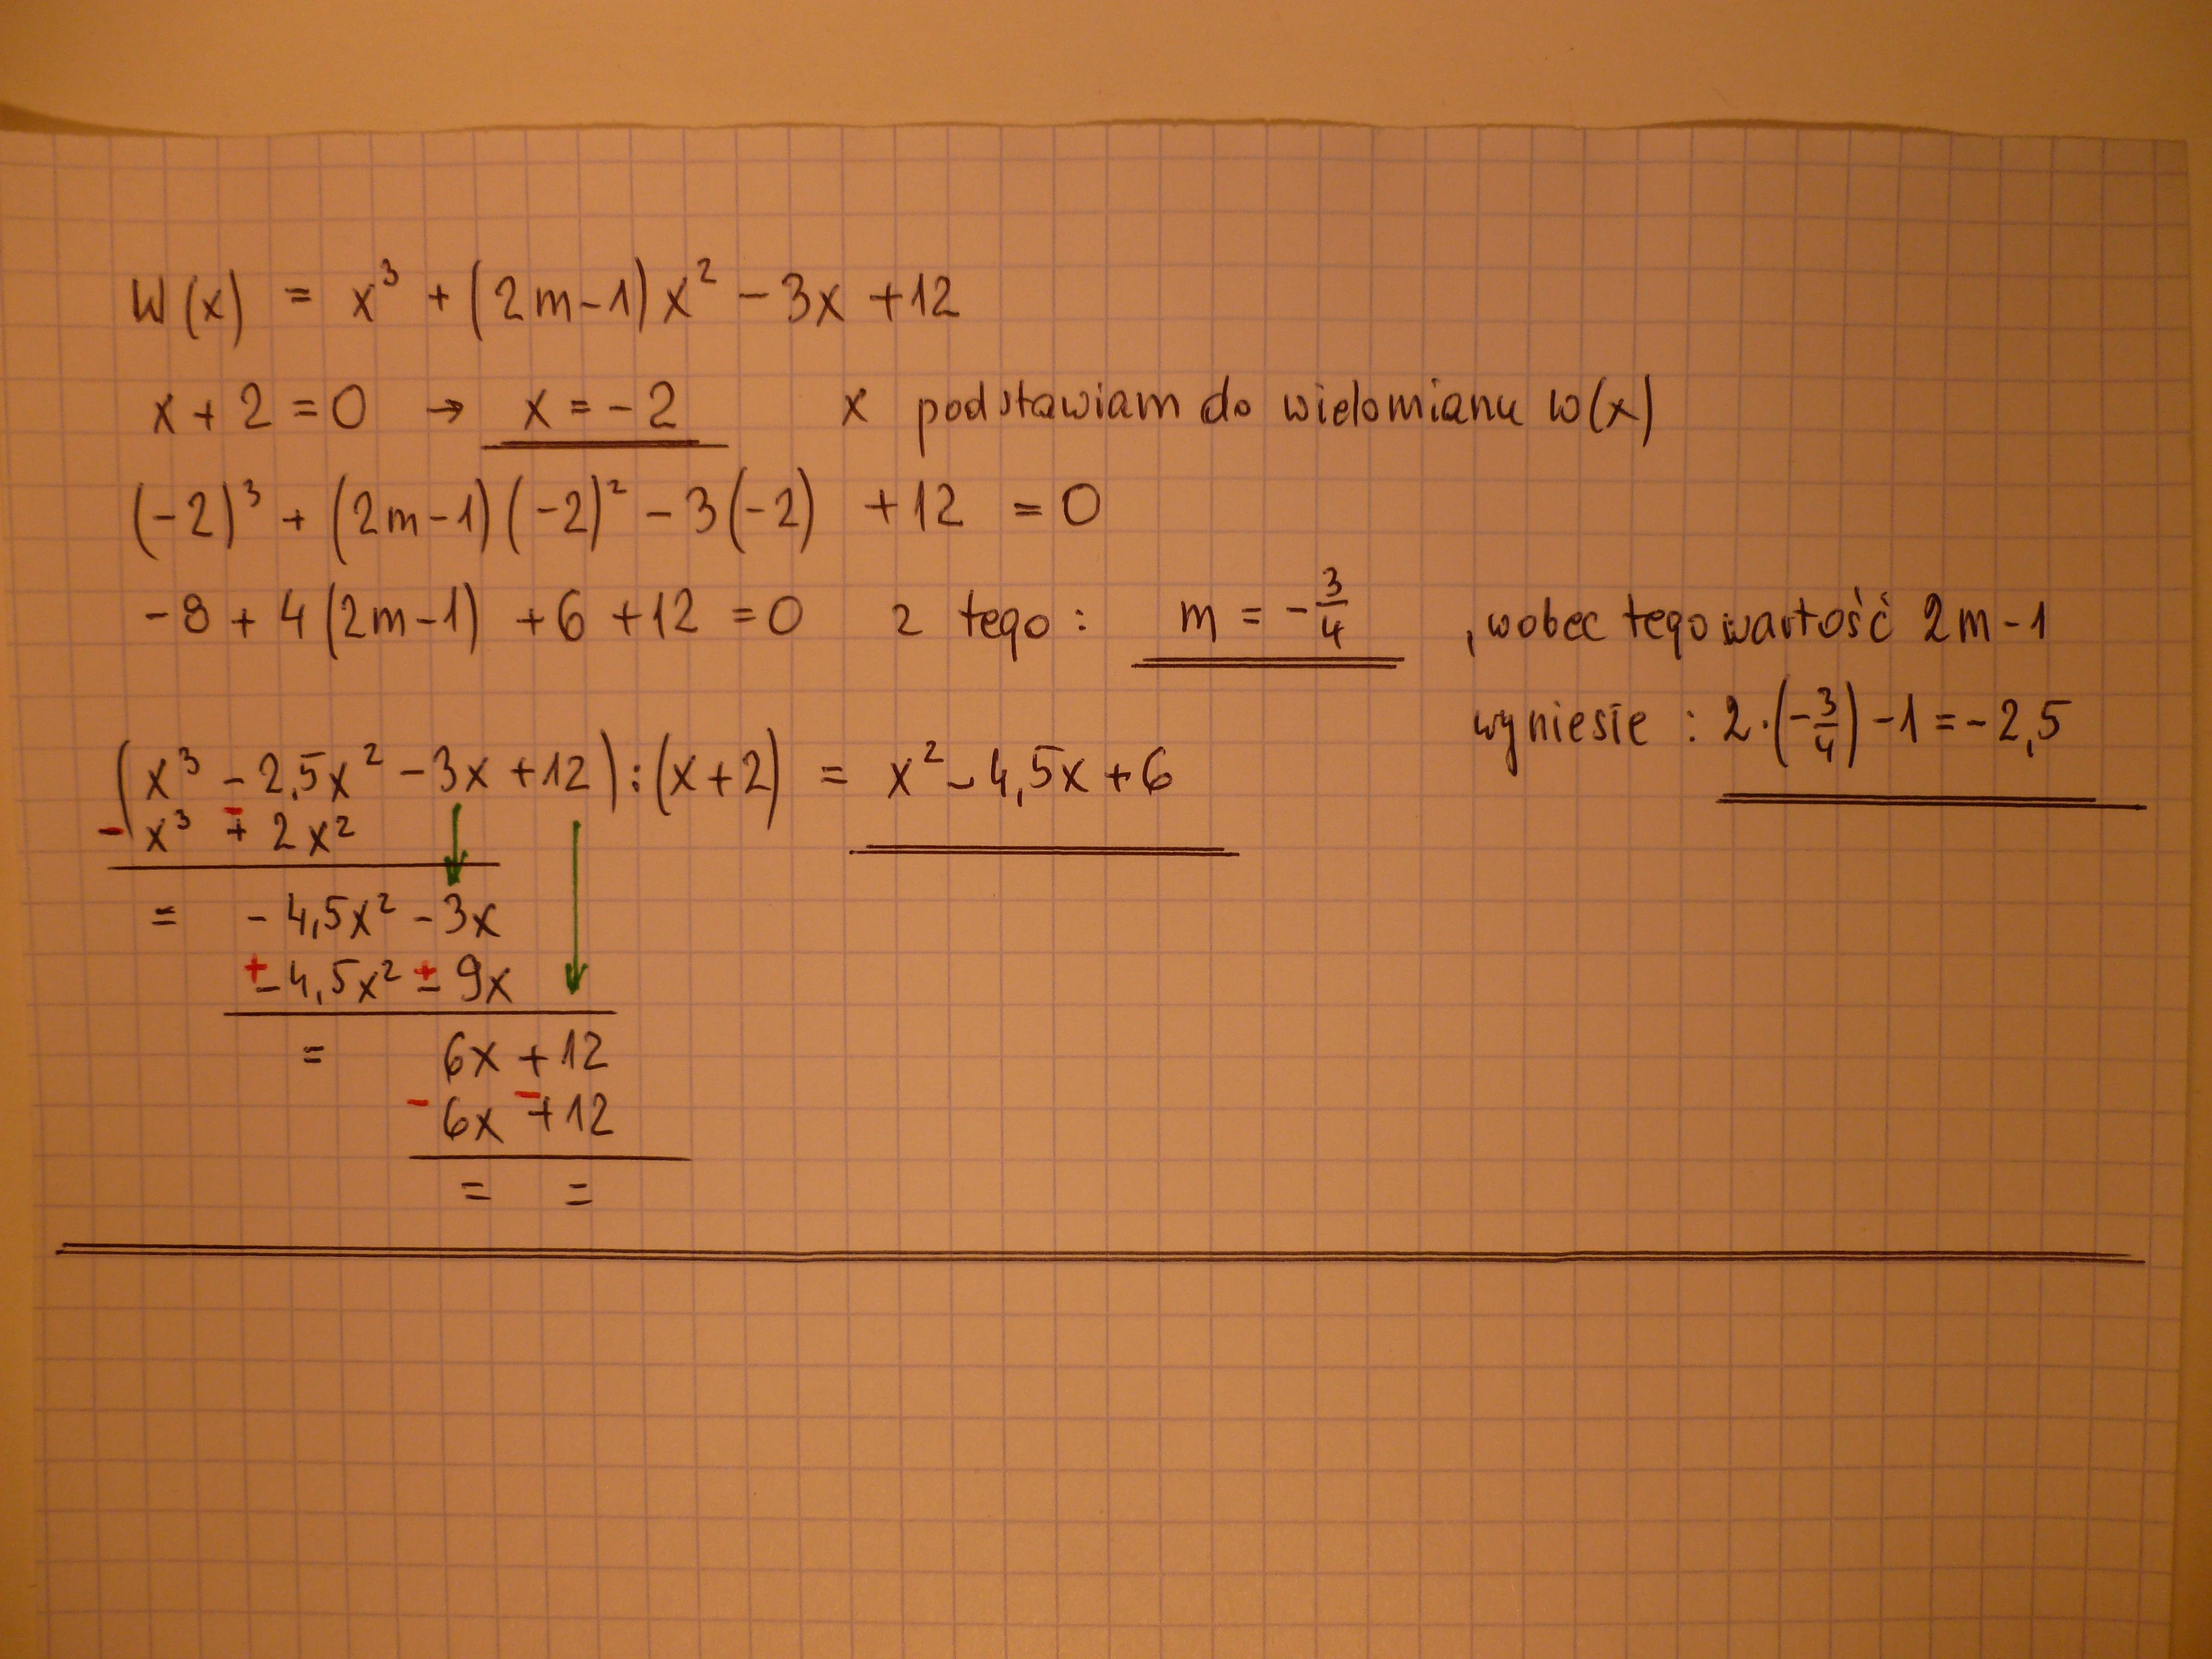 W(x) = x³ + (2m-1)x² - 3x + 12
x + 2 = 0 → x = -2 x podstawiam do wielomianu W(x)
(-2)³ + (2m-1)(-2)² - 3(-2) + 12 = 0
-8 + 4(2m-1) + 6 + 12 = 0 z tego: m = -3/4 , wobec tego wartość 2m-1
wyniesie : 2·(-3/4) - 1 = -2,5
(x³ - 2,5x² - 3x + 12) : (x+2) = x² - 4,5x + 6
- x³ + - 2x²
= - 4,5x² - 3x
+ - 4,5x² + - 9x
= 6x + 12
- 6x - + 12
= =